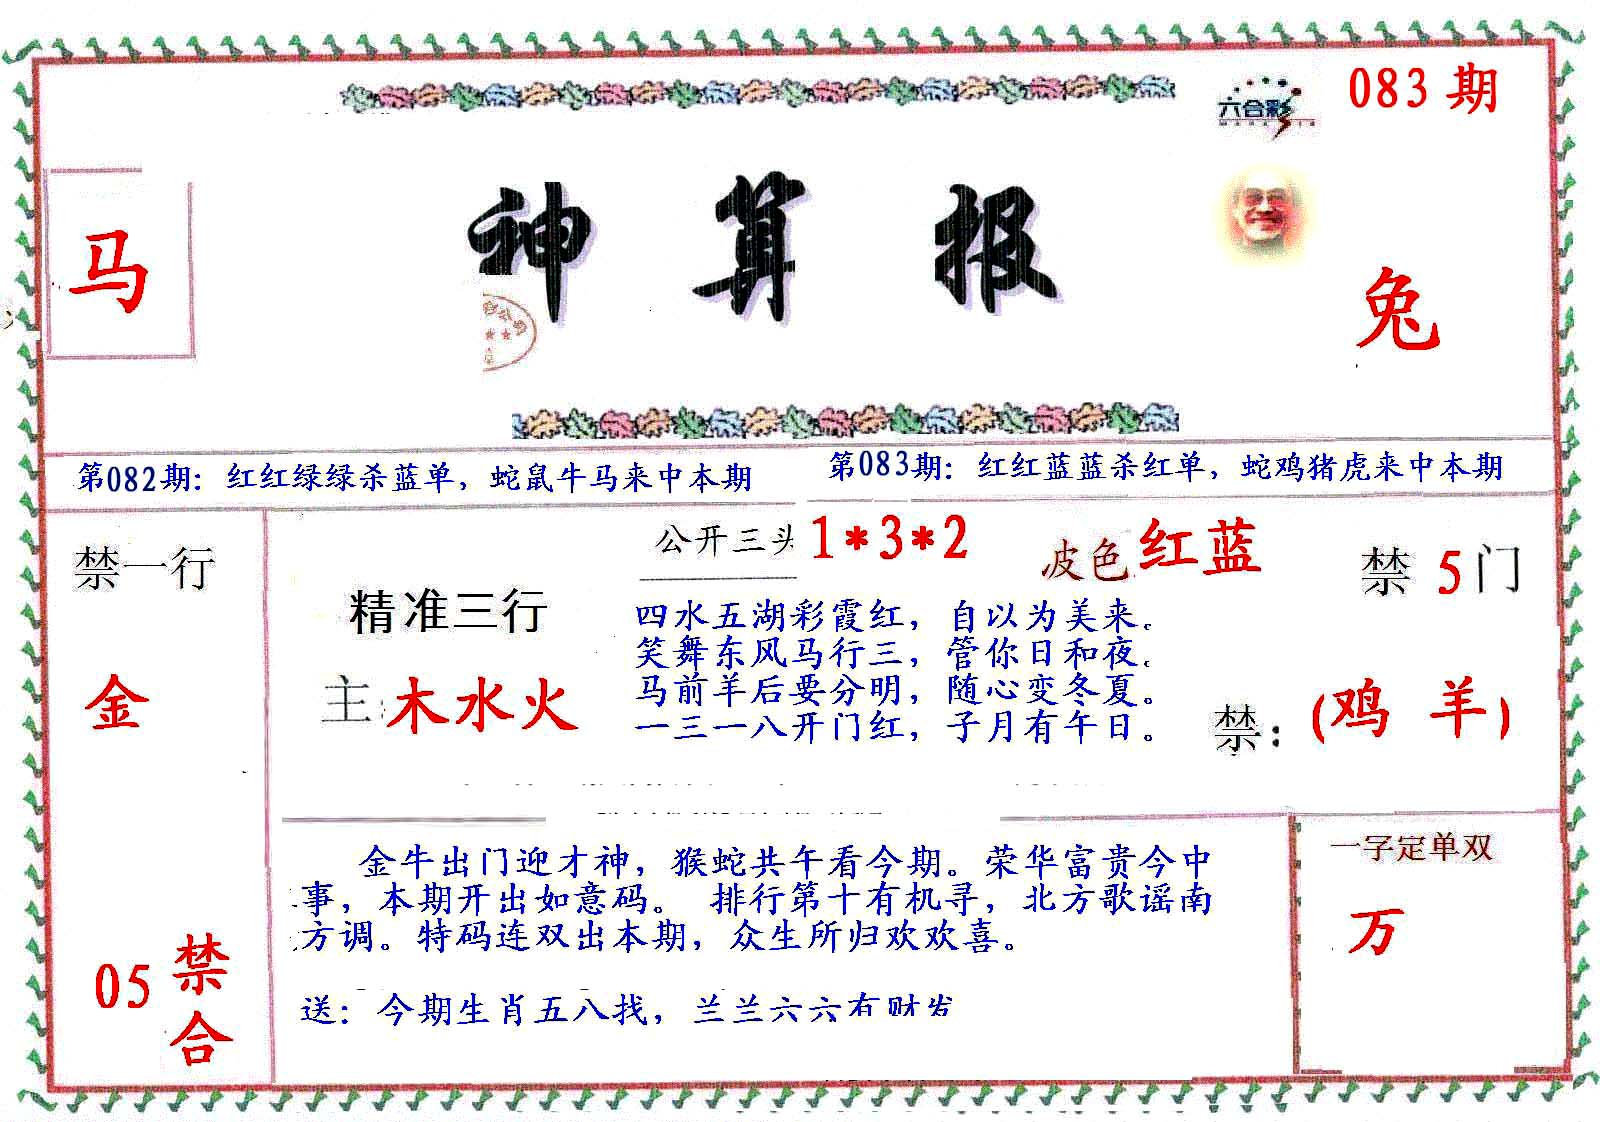 083期
六合彩
马
神算报
兔
第082期：红红绿绿杀蓝单，蛇鼠牛马来中本期
第083期：红红蓝蓝杀红单，蛇鸡猪虎来中本期
禁一行
金
05禁合
精准三行
主:木水火
公开三头 1*3*2
皮色 红蓝
禁 5 门
四水五湖彩霞红，自以为美来。
笑舞东风马行三，管你日和夜。
马前羊后要分明，随心变冬夏。
一三一八开门红，子月有午日。
禁：(鸡 羊)
金牛出门迎才神，猴蛇共午看今期。荣华富贵今中
事，本期开出如意码。 排行第十有机寻，北方歌谣南
方调。特码连双出本期，众生所归欢欢喜。
送：今期生肖五八找，兰兰六六有财发
一字定单双
万